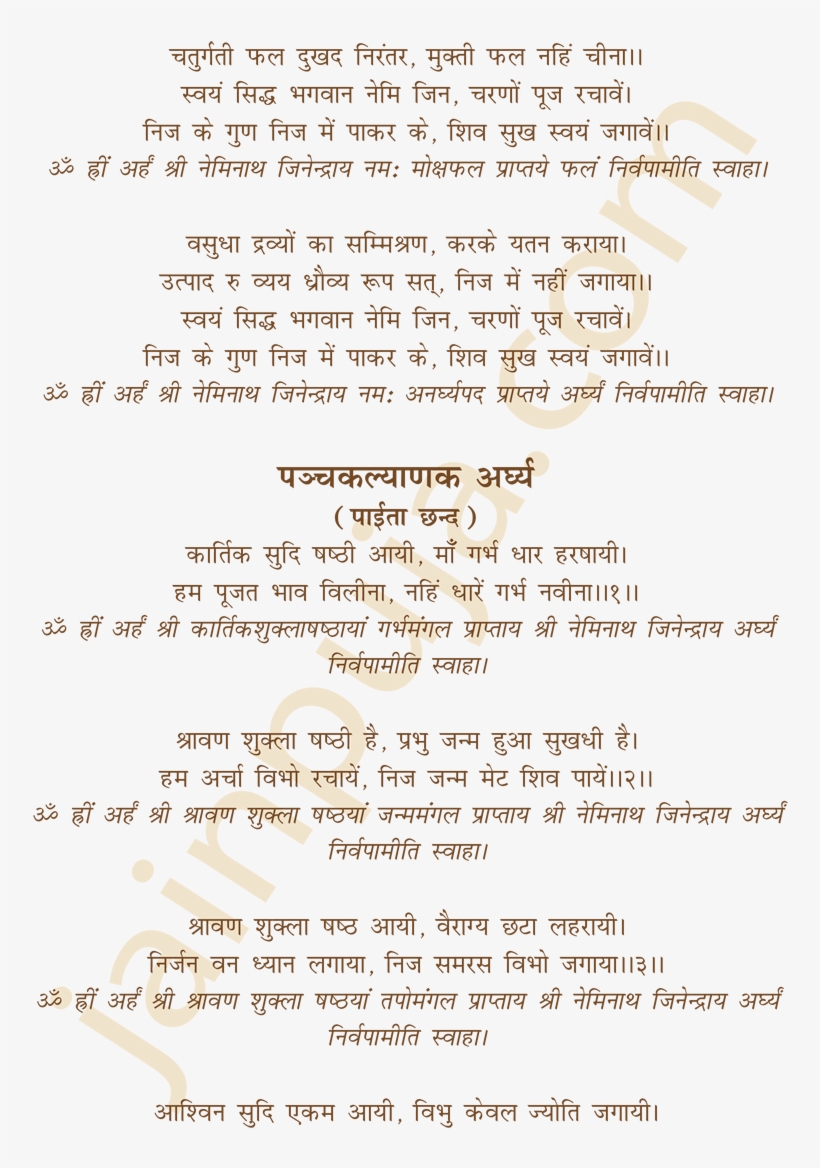 चतुर्गती फल दुखद निरंतर, मुक्ती फल नहिं चीना।।
स्वयं सिद्ध भगवान नेमि जिन, चरणों पूज रचावें।
निज के गुण निज में पाकर के, शिव सुख स्वयं जगावें।।
ॐ ह्रीं अर्हं श्री नेमिनाथ जिनेन्द्राय नम: मोक्षफल प्राप्तये फलं निर्वपामीति स्वाहा।
वसुधा द्रव्यों का सम्मिश्रण, करके यतन कराया।
उत्पाद रु व्यय ध्रौव्य रूप सत्, निज में नहीं जगाया।।
स्वयं सिद्ध भगवान नेमि जिन, चरणों पूज रचावें।
निज के गुण निज में पाकर के, शिव सुख स्वयं जगावें।।
ॐ ह्रीं अर्हं श्री नेमिनाथ जिनेन्द्राय नम: अनर्घ्यपद प्राप्तये अर्घ्यं निर्वपामीति स्वाहा।
पञ्चकल्याणक अर्घ्य
( पाईता छन्द )
कार्तिक सुदि षष्ठी आयी, माँ गर्भ धार हरषायी।
हम पूजत भाव विलीना, नहिं धारें गर्भ नवीना।।१।।
ॐ ह्रीं अर्हं श्री कार्तिकशुक्लाषष्ठायां गर्भमंगल प्राप्ताय श्री नेमिनाथ जिनेन्द्राय अर्घ्यं
निर्वपामीति स्वाहा।
श्रावण शुक्ला षष्ठी है, प्रभु जन्म हुआ सुखधी है।
हम अर्चा विभो रचायें, निज जन्म मेट शिव पायें।।२।।
ॐ ह्रीं अर्हं श्री श्रावण शुक्ला षष्ठयां जन्ममंगल प्राप्ताय श्री नेमिनाथ जिनेन्द्राय अर्घ्यं
निर्वपामीति स्वाहा।
श्रावण शुक्ला षष्ठ आयी, वैराग्य छटा लहरायी।
निर्जन वन ध्यान लगाया, निज समरस विभो जगाया।।३।।
ॐ ह्रीं अर्हं श्री श्रावण शुक्ला षष्ठयां तपोमंगल प्राप्ताय श्री नेमिनाथ जिनेन्द्राय अर्घ्यं
निर्वपामीति स्वाहा।
आश्विन सुदि एकम आयी, विभु केवल ज्योति जगायी।
jainpuja.com